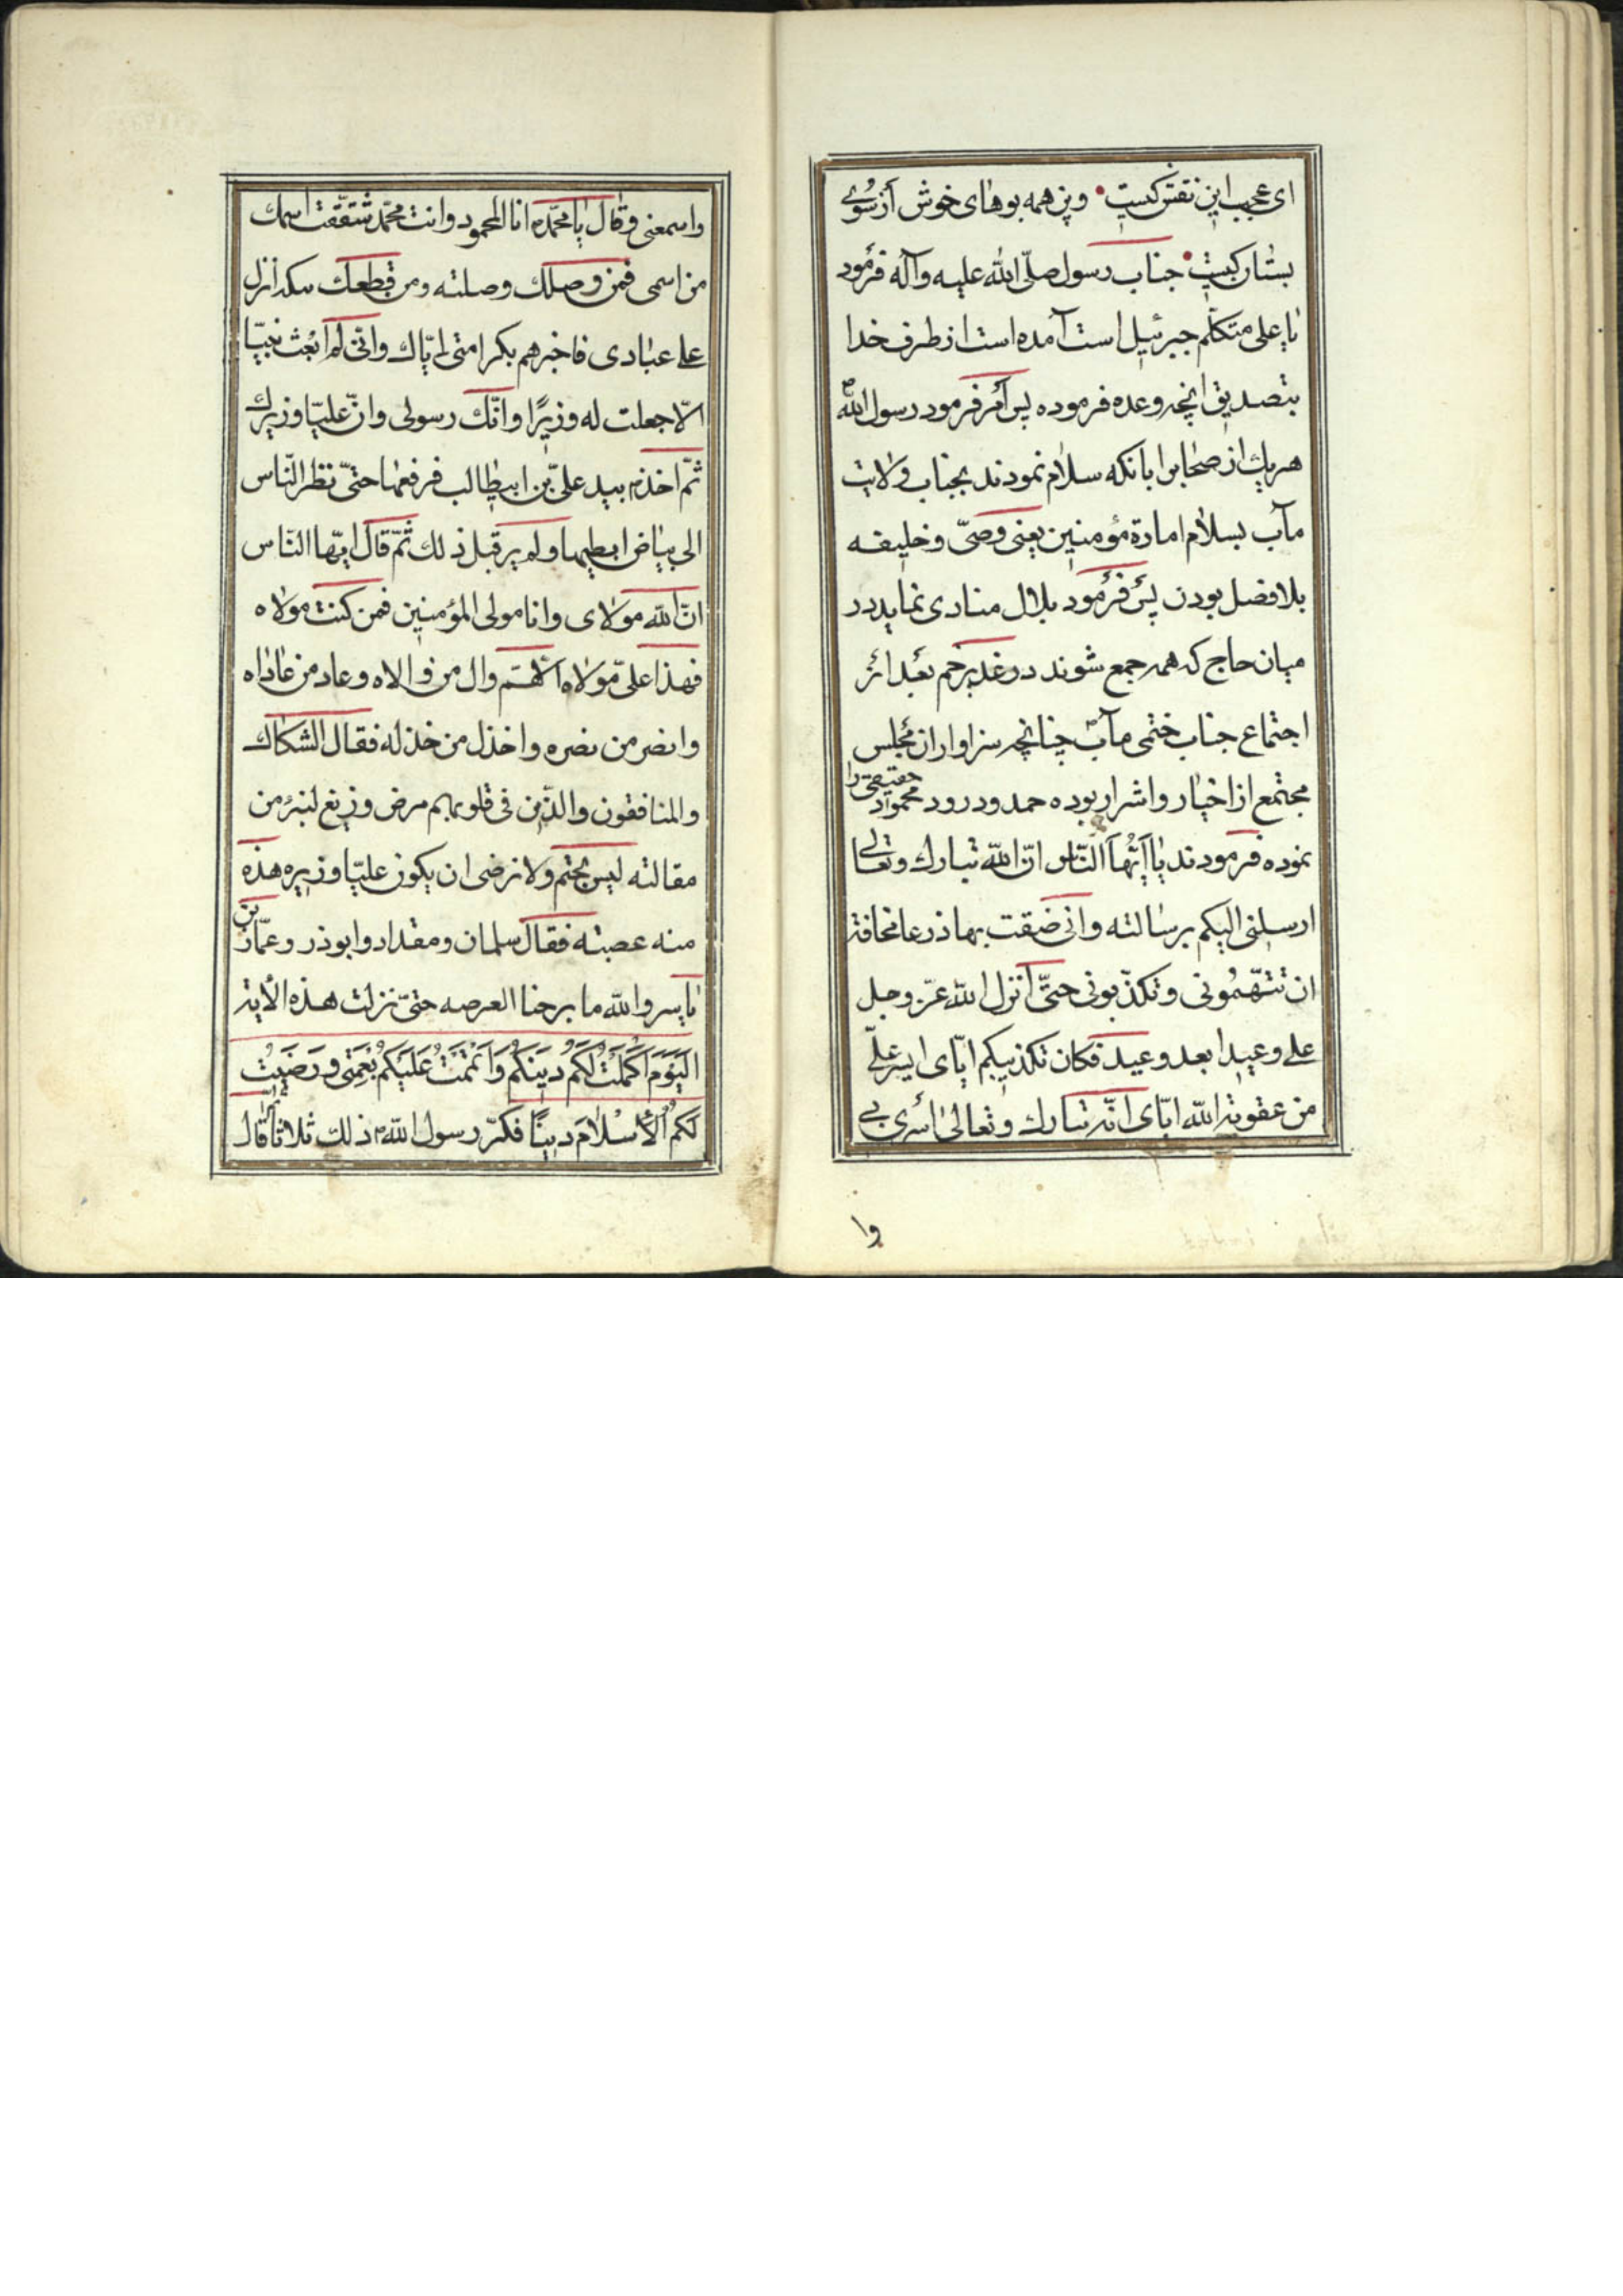 ای عجب این نفس کیست وین همه بوهای خوش از سوی
بستان کیست جناب رسول صلّی الله علیه وآله فرمود
یا علی متکلّم جبرئیل است آمده است از طرف خدا
بتصدیق انچه وعده فرموده پس امر فرمود رسول الله ص
هریك از صحابرا بانکه سلام نمودند بجناب ولایت
مآب بسلام امارة مؤمنین یعنی وصیّ و خلیفه
بلا فضل بودن پس فرمود بلال منادی نماید در
میان حاج که همه جمع شوند در غدیر خم بعد از
اجتماع جناب ختمی مآب چنانچه سزاوار ان مجلس
مجتمع از اخیار و اشرار بوده حمد و درود محمود حقیقی را
نموده فرمودند یا اَیّهَا النّاس انّ الله تبارك وتعالی
ارسلنی الیکم برسالته وانی ضقت بها ذرعا مخافة
ان تتّهمونی وتکذّبونی حتیّ انزل الله عزّ وجل
علی وعیدا بعد وعید فکان تکذیبکم ایّای ایسر علیّ
من عقوبة الله ایّای انّه تبارك وتعالی اسری بی
وا
واسمعنی وقال یا محمّد انا المحمود وانت محمّد شققت اسمك
من اسمی فمن وصلك وصلته ومن قطعك انزل
علی عبادی فاخبرهم بکرامتی ایّاك وانّی لم ابعث نبیّا
الّا جعلت له وزیرًا وانّك رسولی وانّ علیّا وزیرك
ثمّ اخذ بید علیّ بن ابیطالب فرفعها حتیّ نظر النّاس
الی بیاض ابطیهما ولم یر قبل ذلك ثمّ قال ایّها النّاس
انّ الله مولای وانا مولی المؤمنین فمن کنت مولاه
فهذا علیّ مولاه اللّهمّ وال من والاه وعاد من عاداه
وانصر من نصره واخذل من خذله فقال الشکاك
والمنافقون والذّین فی قلوبهم مرض وزیغ لنبرء من
مقالته لیس بحتم ولا نرضی ان یکون علیّا وزیره هذه
منه عصبته فقال سلمان ومقداد وابوذر وعمّار بن
یاسر والله ما برحنا العرصه حتیّ نزلت هذه الأیة
اَلْیَوْمَ اَکْمَلْتُ لَکُمْ دِینَکُمْ وَاَتْمَمْتُ عَلَیْکُمْ نِعْمَتی وَرَضَیتُ
لَکُمُ اْلأِسْلاٰمَ دینًا فکرّر رسول الله ذلك ثلاثًا ثم قال